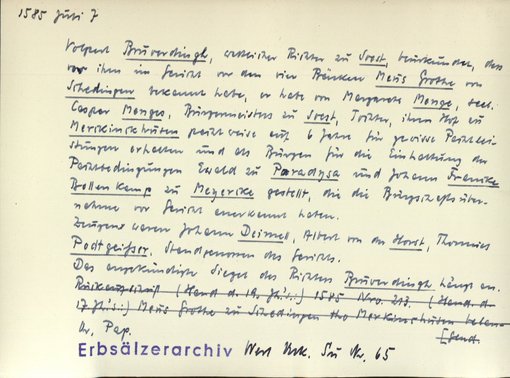 1585 Juli 7
Volpert Bruverdingk, weltlicher Richter zu Soest, beurkundet, dass
vor ihm im Gericht vor den vier Bänken Meus Grothe von
Schedingen bekannt habe, er habe von Margarete Menge, sel.
Caspar Menges, Bürgermeisters zu Soest, Tochter, ihren Hof zu
Merckinckhusen pachtweise auf 6 Jahre für gewisse Pachtlei-
stungen erhalten und als Bürgen für die Einhaltung der
Pachtbedingungen Ewald zu Paradysa und Johann Francke
Bollenkamp zu Meyerike gestellt, die die Bürgschaftsüber-
nahme vor Gericht anerkannt haben.
Zeugen waren Johann Deimel, Albert von der Horst, Thonnies
Podtgeisser, Standgenossen des Gerichts.
Das angekündigte Siegel des Richters Bruverdingk hängt an.
Rückaufschrift (Hand d. 19. Jh.s.:) 1585 Nro. 213. (Hand d.
17 Jh.s.:) Meus Grothe zu Schedingen tho Merkinchusen belan-
[gend
Or. Pap.
Erbsälzerarchiv Werl Urk. Su Nr. 65